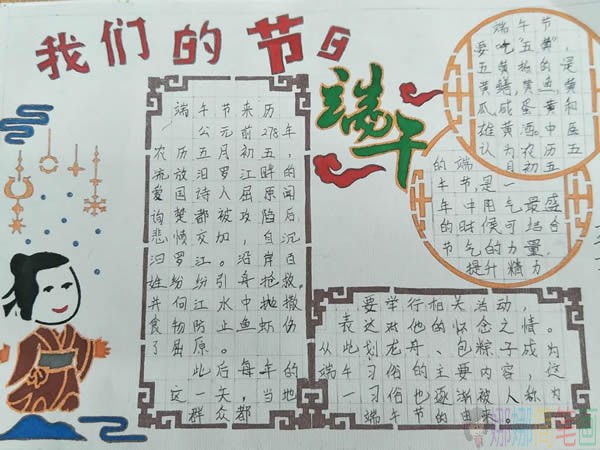 我们的节日
端午
端午节来历
公元前278年，
农历五月初五，
流放汨罗江畔的
爱国诗人屈原闻
询楚都被攻陷后
悲愤交加，自沉
汨罗江。沿岸百
姓纷纷引舟抢救，
并向江水中抛撒
食物防止鱼虾伤
了屈原。
此后每年的
这一天，当地
群众都
要举行相关活动，
表达对他的怀念之情。
从此划龙舟、包粽子成为
端午习俗的主要内容，这
一习俗也逐渐被人称为
端午节的由来。
端午节
要吃“五黄”，
五黄指的是
黄鳝，黄鱼，黄
瓜咸蛋黄和
雄黄酒。中医
认为农历五
月初五
的端
午节，是一
年中用气最盛
的时候可合
节气的力量，
提升精力
娜娜简笔画